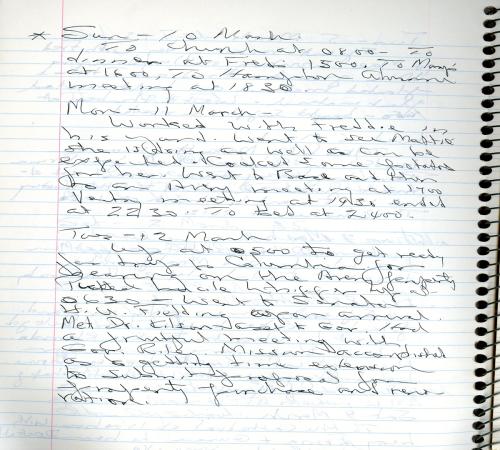 * Sun - 10 March
To Church at 0800 - To
dinner at Fred 1500. To Mary's
at 1600. To Hampton Alumni
meeting at 1830.
Mon - 11 March
Worked with Freddie in
his yard. Went to see Mattie
She is doing as well as can be
expected. Cooked some potatoes
for her. Went to Base and then
to an Army meeting at 1700
Vestry meeting at 1930 ended
at 2230. To bed at 2400.
Tues - 12 March
Up at 0500 to get ready
for trip to Columbia for
hearing on the Army property
0630 - Went to Senator
upon arrival.
Met Dr. and Gov. Had
a fruitful meeting with
Gov. Mission accomplished
getting time extension
to submit proposal for
property purchase and reno
vation.